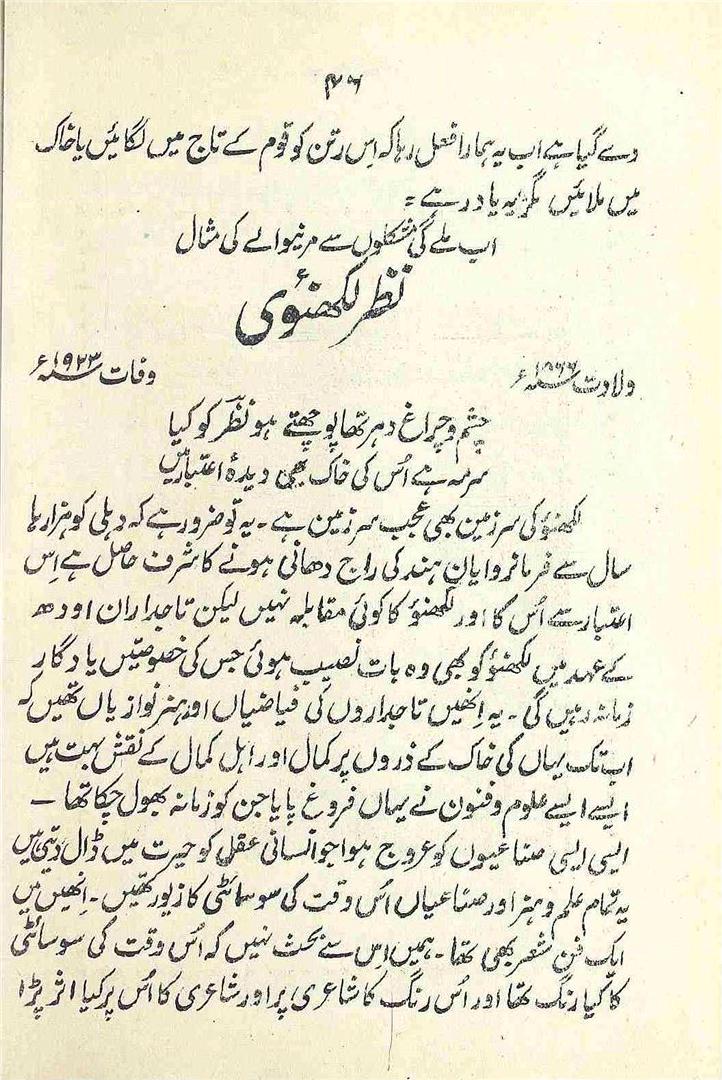 ۴۶
دے گیا ہے اب یہ ہمارا فعل رہا کہ اِس رتن کو قوم کے تاج میں لگائیں یا خاک
میں ملائیں مگر یہ یاد رہے =
اب ملے گی مشکلوں سے مرنیوالے کی مثال
نظر لکھنوٗی
ولادت ۱۸۶۶ء
وفات ۱۹۲۳ء
چشم و چراغ دہر تھا پوچھتے ہو نظرؔ کو کیا
سرمہ ہے اُس کی خاک بھی دیدۂ اعتبار میں
لکھنؤ کی سرزمین بھی عجب سرزمین ہے ۔ یہ تو ضرور ہے کہ دہلی کو ہزارہا
سال سے فرمانروایانِ ہند کی راج دھانی ہونے کا شرف حاصل ہے اِس
اعتبار سے اُس کا اور لکھنؤ کا کوئی مقابلہ نہیں لیکن تاجداران اودھ
کے عہد میں لکھنؤ کو بھی وہ بات نصیب ہوئی جس کی خصوصیتیں یادگار
زمانہ رہیں گی ۔ یہ اِنھیں تاجداروں کی فیاضیاں اور ہنر نوازیاں تھیں کہ
اب تک یہاں کی خاک کے ذروں پر کمال اور اہل کمال کے نقش بہت ہیں
ایسے ایسے علوم و فنون نے یہاں فروغ پایا جن کو زمانہ بھول چکا تھا ۔
ایسی ایسی صناعیوں کو عروج ہوا جو انسانی عقل کو حیرت میں ڈال دیتی ہیں
یہ تمام علم و ہنر اور صناعیاں اُس وقت کی سوسائٹی کا زیور تھیں ۔ اِنھیں میں
ایک فن شعر بھی تھا ۔ ہمیں اِس سے بحث نہیں کہ اُس وقت کی سوسائٹی
کا کیا رنگ تھا اور اُس رنگ کا شاعری پر اور شاعری کا اُس پر کیا اثر پڑا